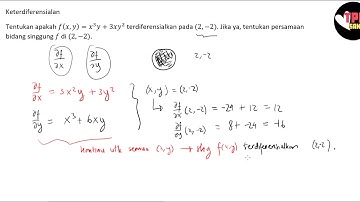 Keterdiferensialan
Tentukan apakah f(x, y) = x³y + 3xy² terdiferensialkan pada (2, −2). Jika ya, tentukan persamaan
bidang singgung f di (2, −2).
∂f/∂x ∂f/∂y 2, -2
∂f/∂x = 3x²y + 3y² (x,y) = (2,-2)
↳ ∂f/∂x (2,-2) = -24 + 12 = 12
∂f/∂y = x³ + 6xy ∂f/∂y (2,-2) = 8 + -24 = -16
kontinu utk semua (x,y) → shg f(x,y) terdiferensialkan (2,-2).